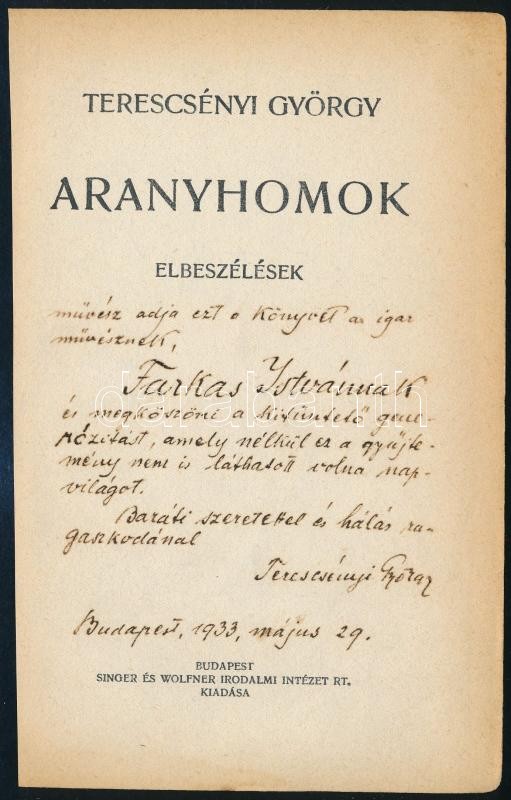 TERESCSÉNYI GYÖRGY
ARANYHOMOK
ELBESZÉLÉSEK
művész adja ezt a könyvet az igaz
művésznek,
Farkas Istvánnak
és megköszöni a kitüntető gene-
rózitást, amely nélkül ez a gyűjte-
mény nem is láthatott volna nap-
világot.
Baráti szeretettel és hálás ra-
gaszkodással
Terescsényi György
Budapest, 1933, május 29.
BUDAPEST
SINGER ÉS WOLFNER IRODALMI INTÉZET RT.
KIADÁSA
darabanth